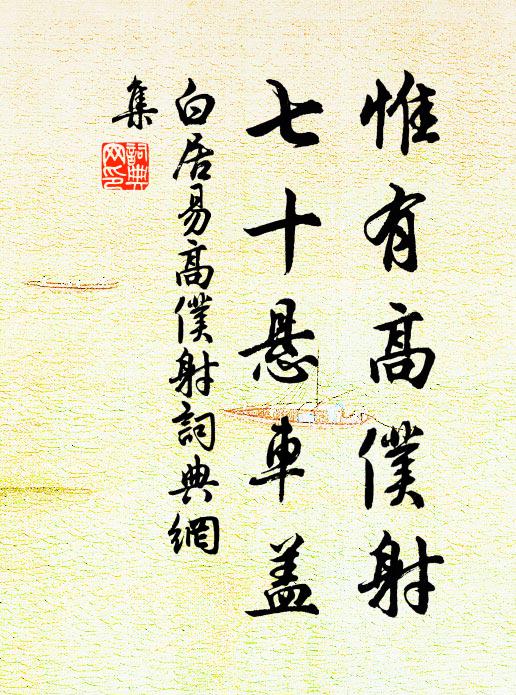 惟有高僕射
七十悬車盖
白居易高僕射詞典網
集
詞典网印